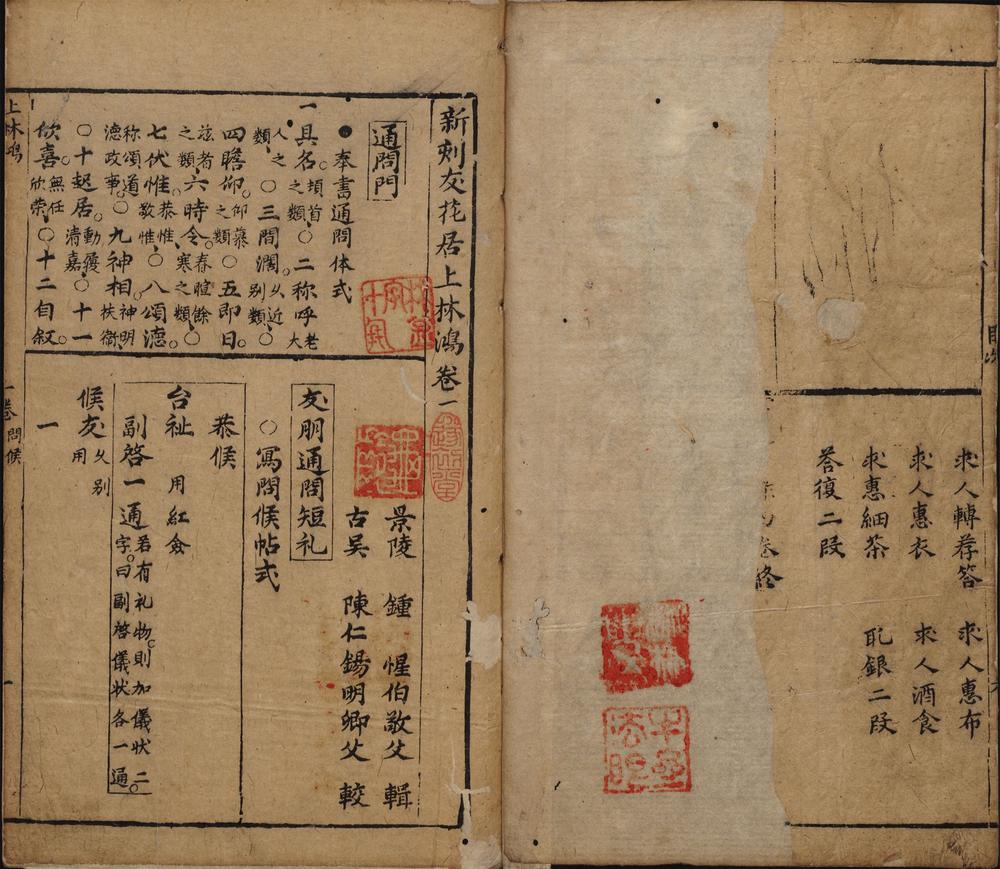 求人轉荐答　求人惠布
求人惠衣　求人酒食
求惠細茶　貺銀二段
答復二段
卷終
目次
新刻友花居上林鴻卷一
通問門
●奉書通問体式
一具名。頓首之類○二称呼老大
人之類○三問濶。久近别類○
四瞻仰。仰慕之類○五即日。
茲者之類六時令。春暄餘寒之類○
七伏惟。恭惟敬惟○八頌德。
称頌道德政事。○九神相。神明扶衛
○十起居。動履清嘉○十一
欣喜。無任欣荣○十二自叙。
景陵　鍾　惺伯敬父　輯
古吳　陳仁錫明卿父　較
友朋通問短礼
○寫問候帖式
恭候
台祉　用紅僉
副啓一通　若有礼物則加儀状二字。曰副啓儀状各一通。
候友　久别用
一
上林鴻　一卷　問候　一